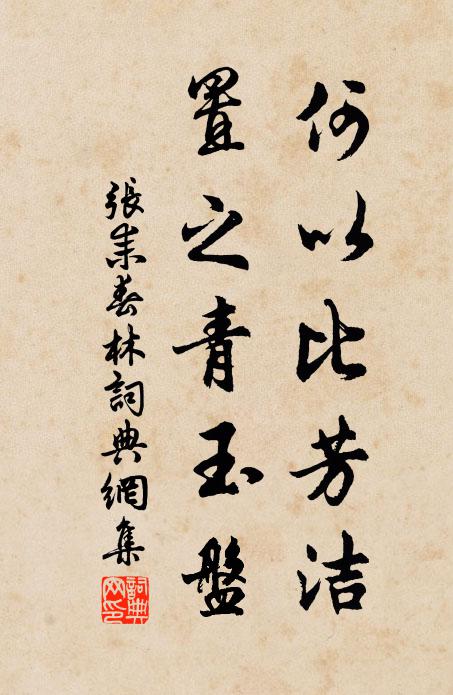 何以比芳洁
置之青玉盤
張耒春林詞典網集
詞典網印